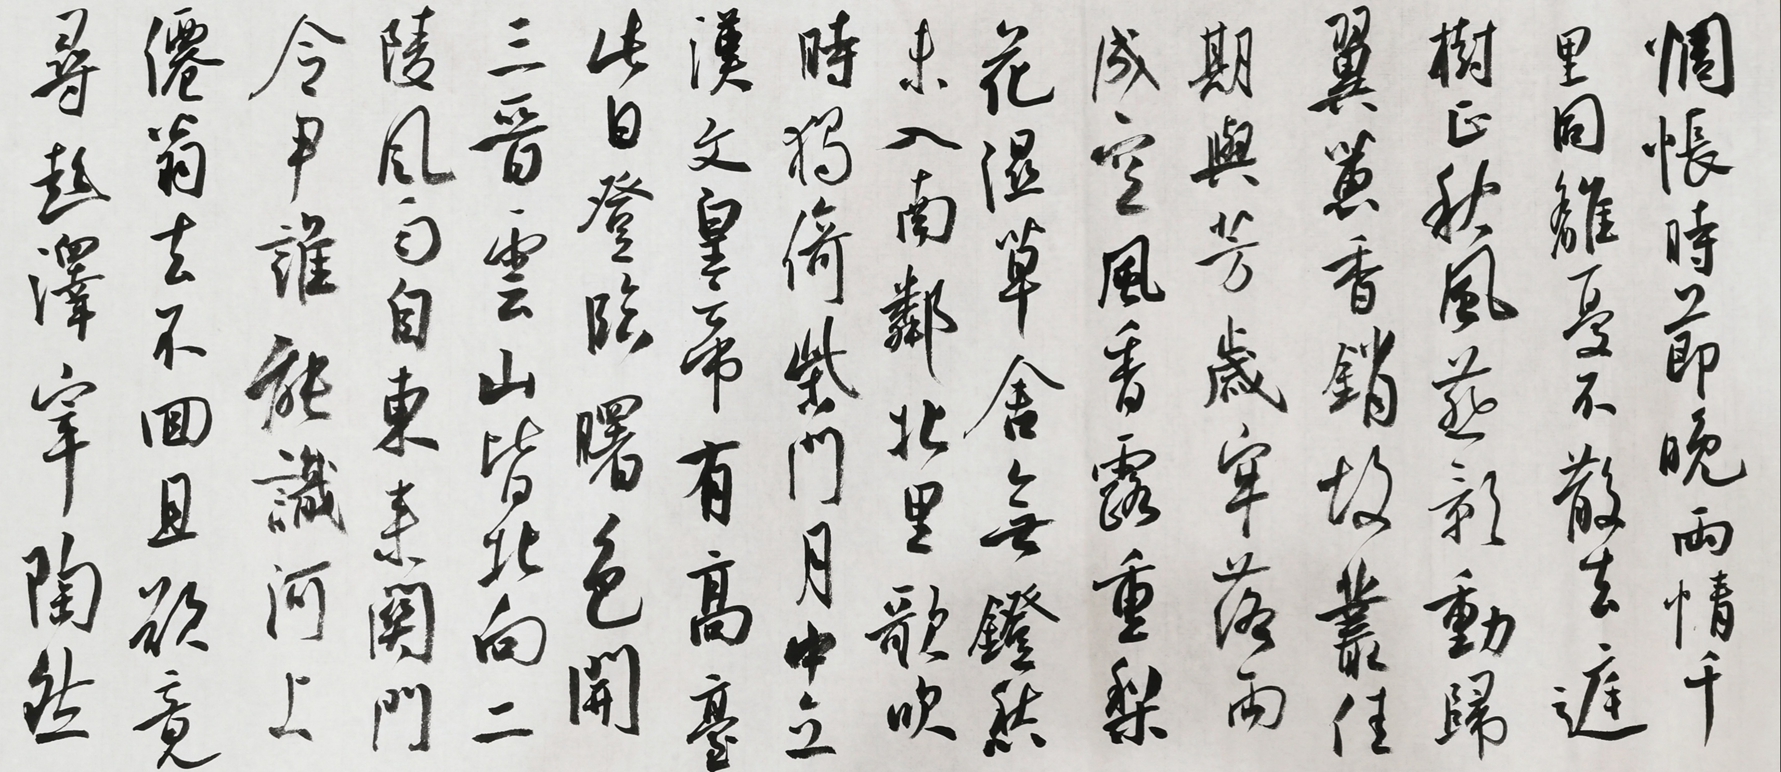 惆悵時節晚兩情千
里同離憂不散去庭
樹正秋風燕影動歸
翼蕙香銷故叢佳
期與芳歲牢落兩
成空風香露重梨
花濕草舍無鐙愁
未入南鄰北里歌吹
時獨倚柴門月中立
漢文皇帝有高臺
此日登臨曙色開
三晉雲山皆北向二
陵風雨自東來關門
令尹誰能識河上
僊翁去不回且欲竟
尋彭澤宰陶然